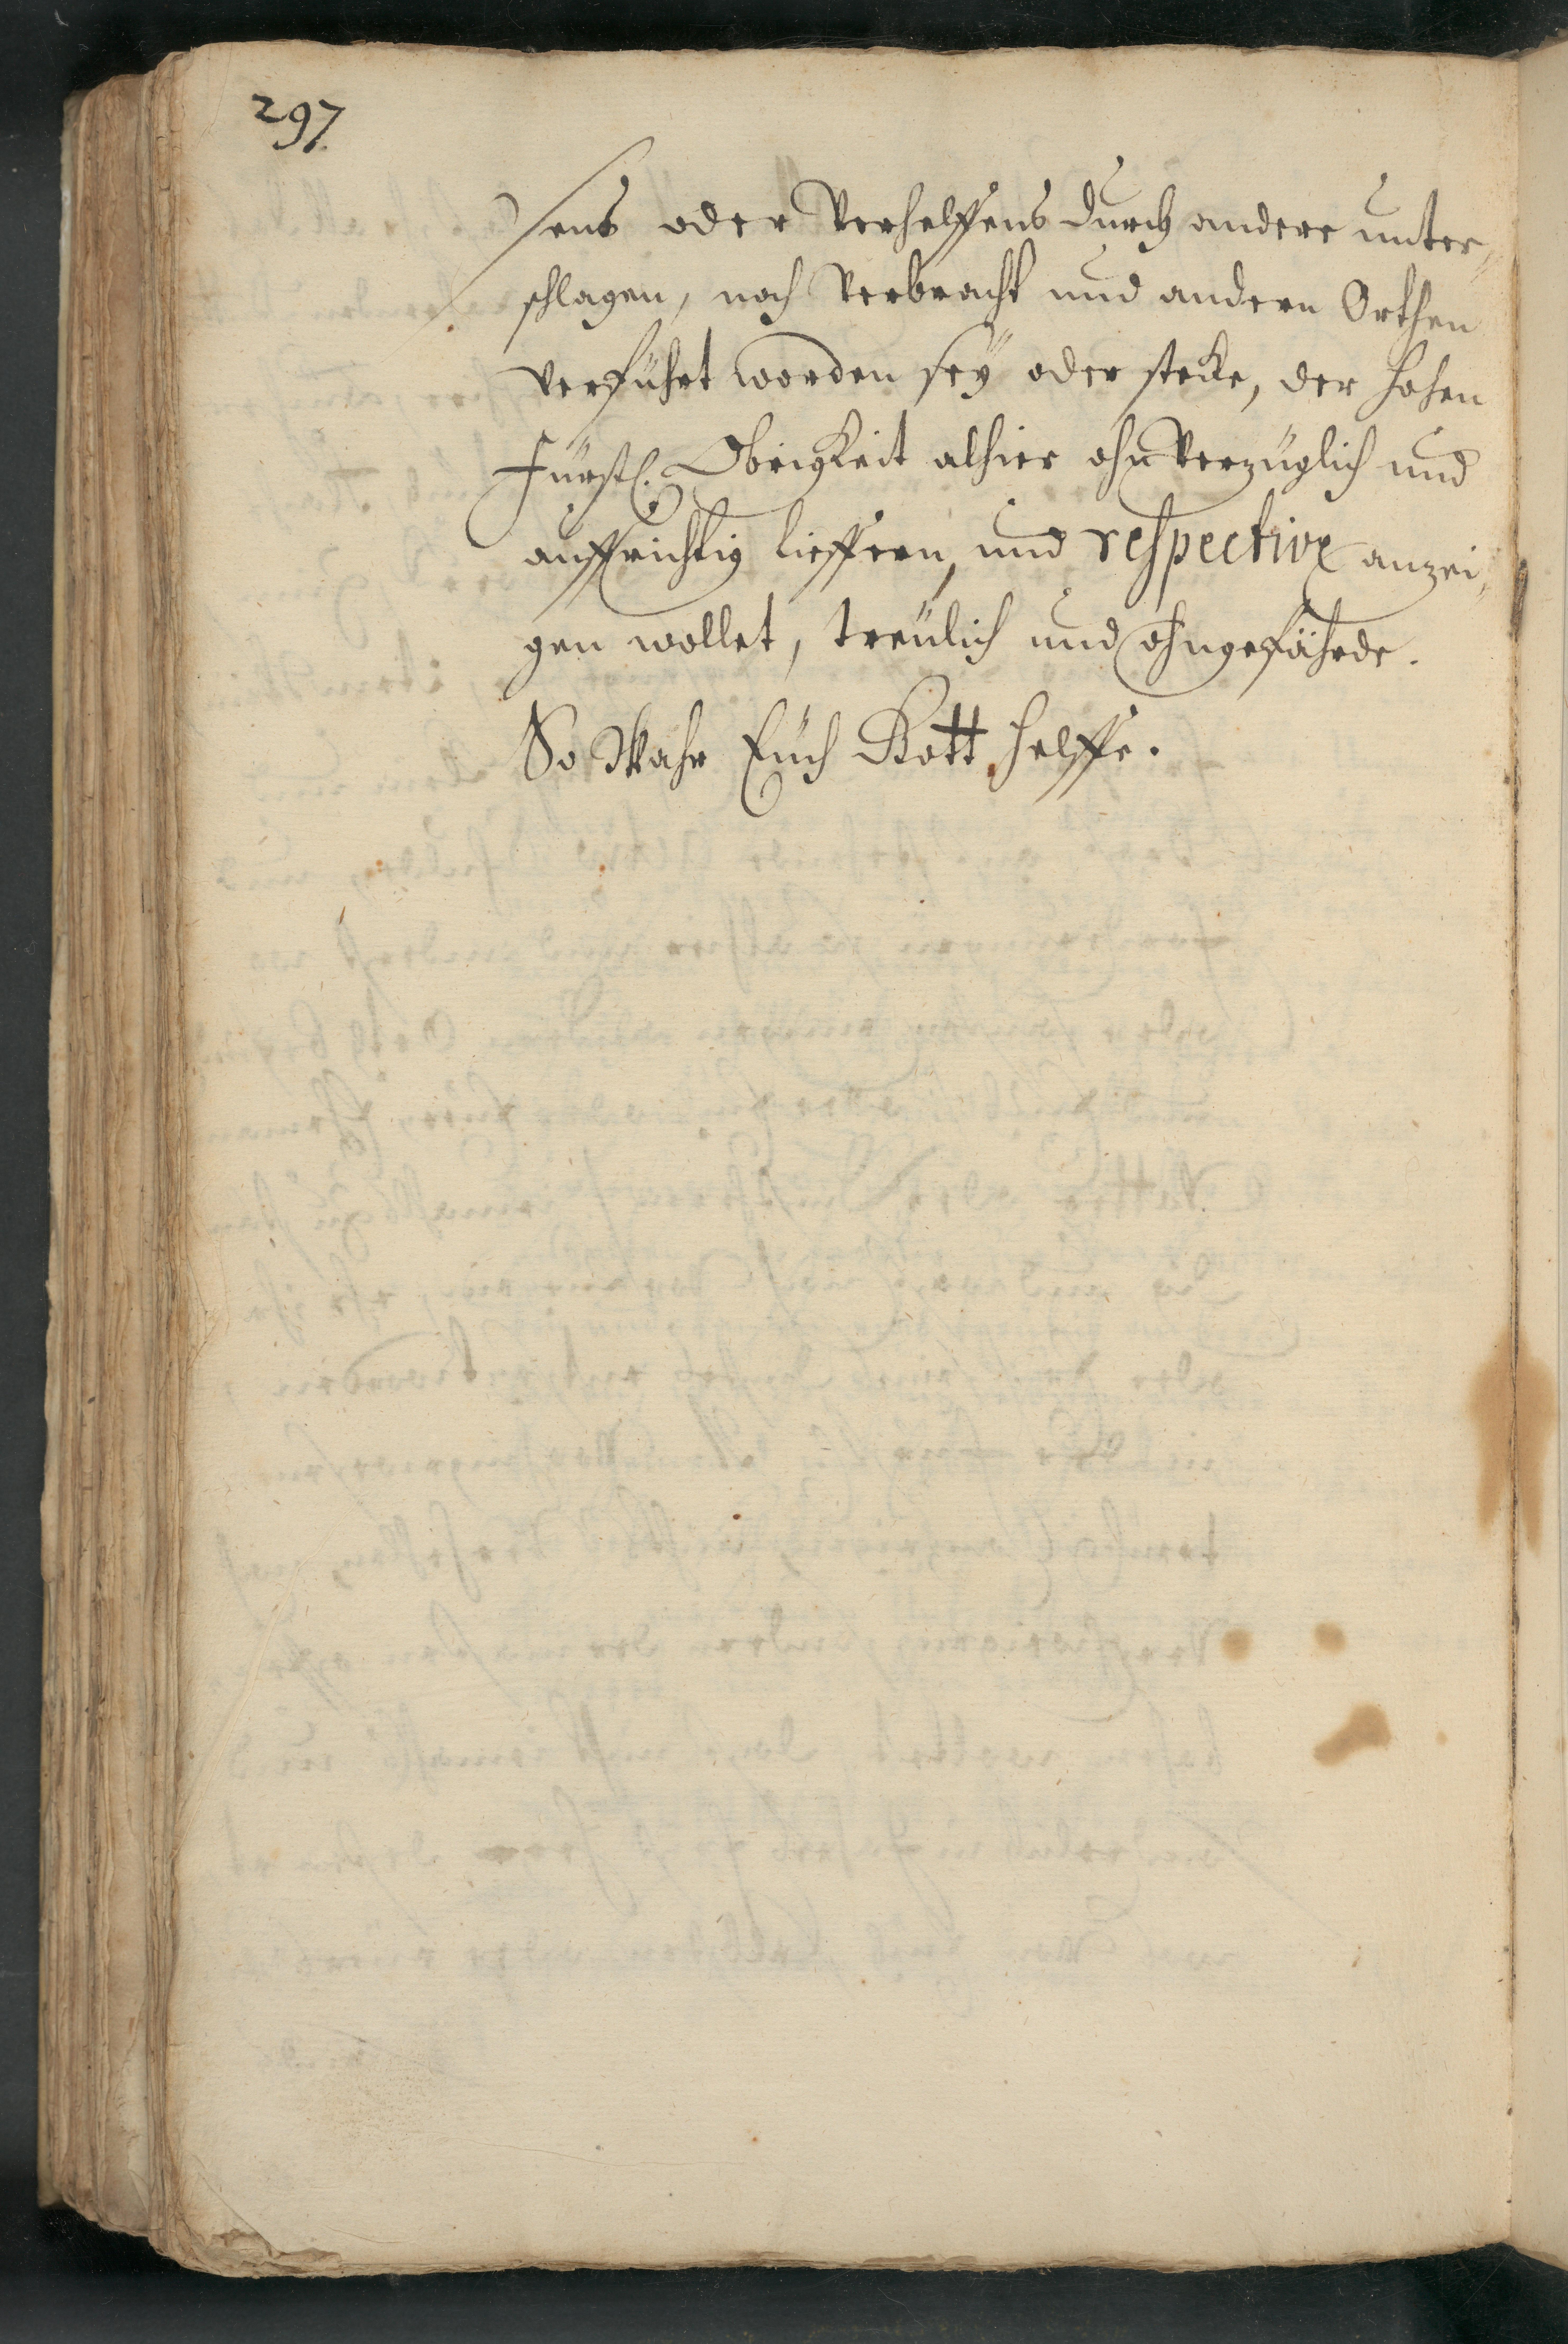 297.
sens oder Verhelffens durch andere unter„
schlagen, noch Verbracht und andern Orthen
verführt worden seÿ oder stecke, der hohen
Fürstl. Obrigkeit alhier ohnverzüglich und
auffrichtig lieffern, und respective anzei„
gen wollet, treülich und ohngefährde.
So Wahr Eüch Gott helffe.